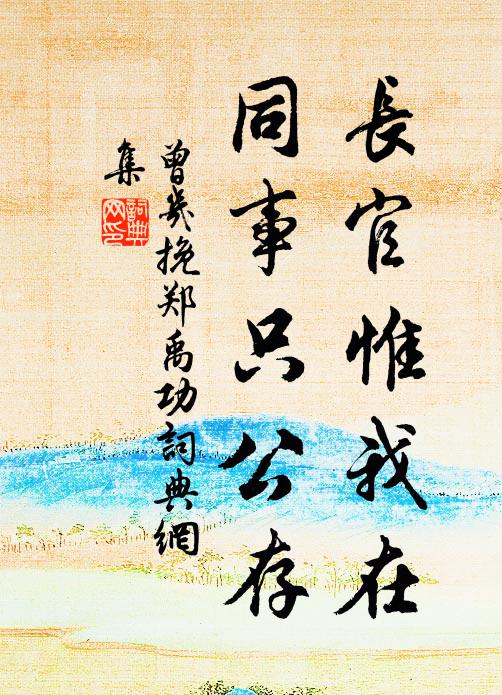 長官惟我在
同事只公存
曾幾挽郑禹功詞典網
集
詞典网印